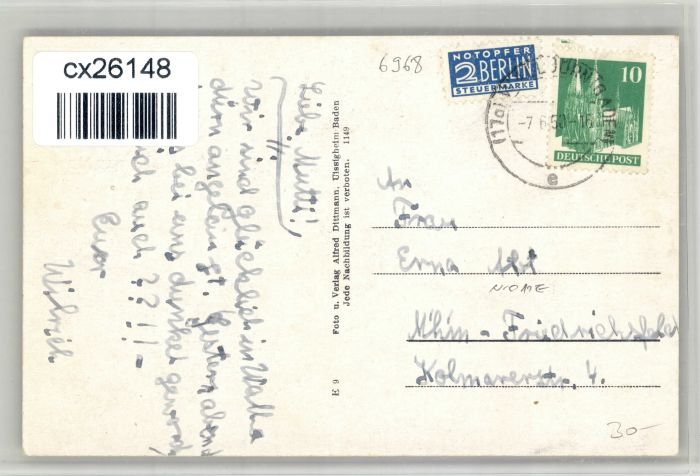 cx26148
6968
NOTOPFER
2 BERLIN
STEUERMARKE
10
DEUTSCHE POST
-7.6.50
(17a)
e
Liebe Mutti!
wir sind glücklich in Walld
dürn angelangt. Gestern abend
bei uns dunkel geword
auch ??!!-
Euer
Foto u. Verlag Alfred Dittmann, Uissigheim Baden
Jede Nachbildung ist verboten. 1149
E 9
An
Frau
Erna
NIOME
Mhm-Friedrichsfeld
Kolmarerstr. 4.
30-